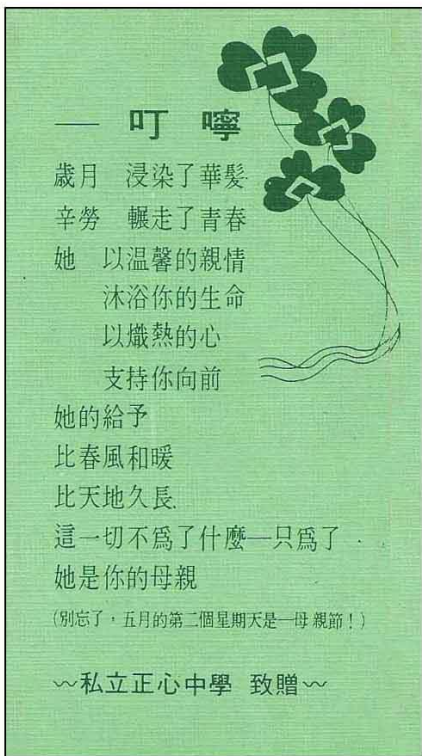 — 叮嚀
歲月　浸染了華髮
辛勞　輾走了青春
她　以温馨的親情
沐浴你的生命
以熾熱的心
支持你向前
她的給予
比春風和暖
比天地久長.
這一切不爲了什麼—只爲了
她是你的母親
(別忘了，五月的第二個星期天是—母親節！)
～私立正心中學 致贈～